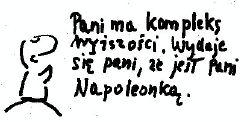 Pani ma kompleks
wyższości. Wydaje
się pani, że jest pani
Napoleonką.